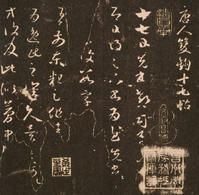 唐人雙鉤十七帖
十七日先書郗司馬未去
即日得足下書為慰先書以
具示復數字
吾前東粗足作佳觀
吾為逸民之懷久矣足下何以
方復及此似夢中